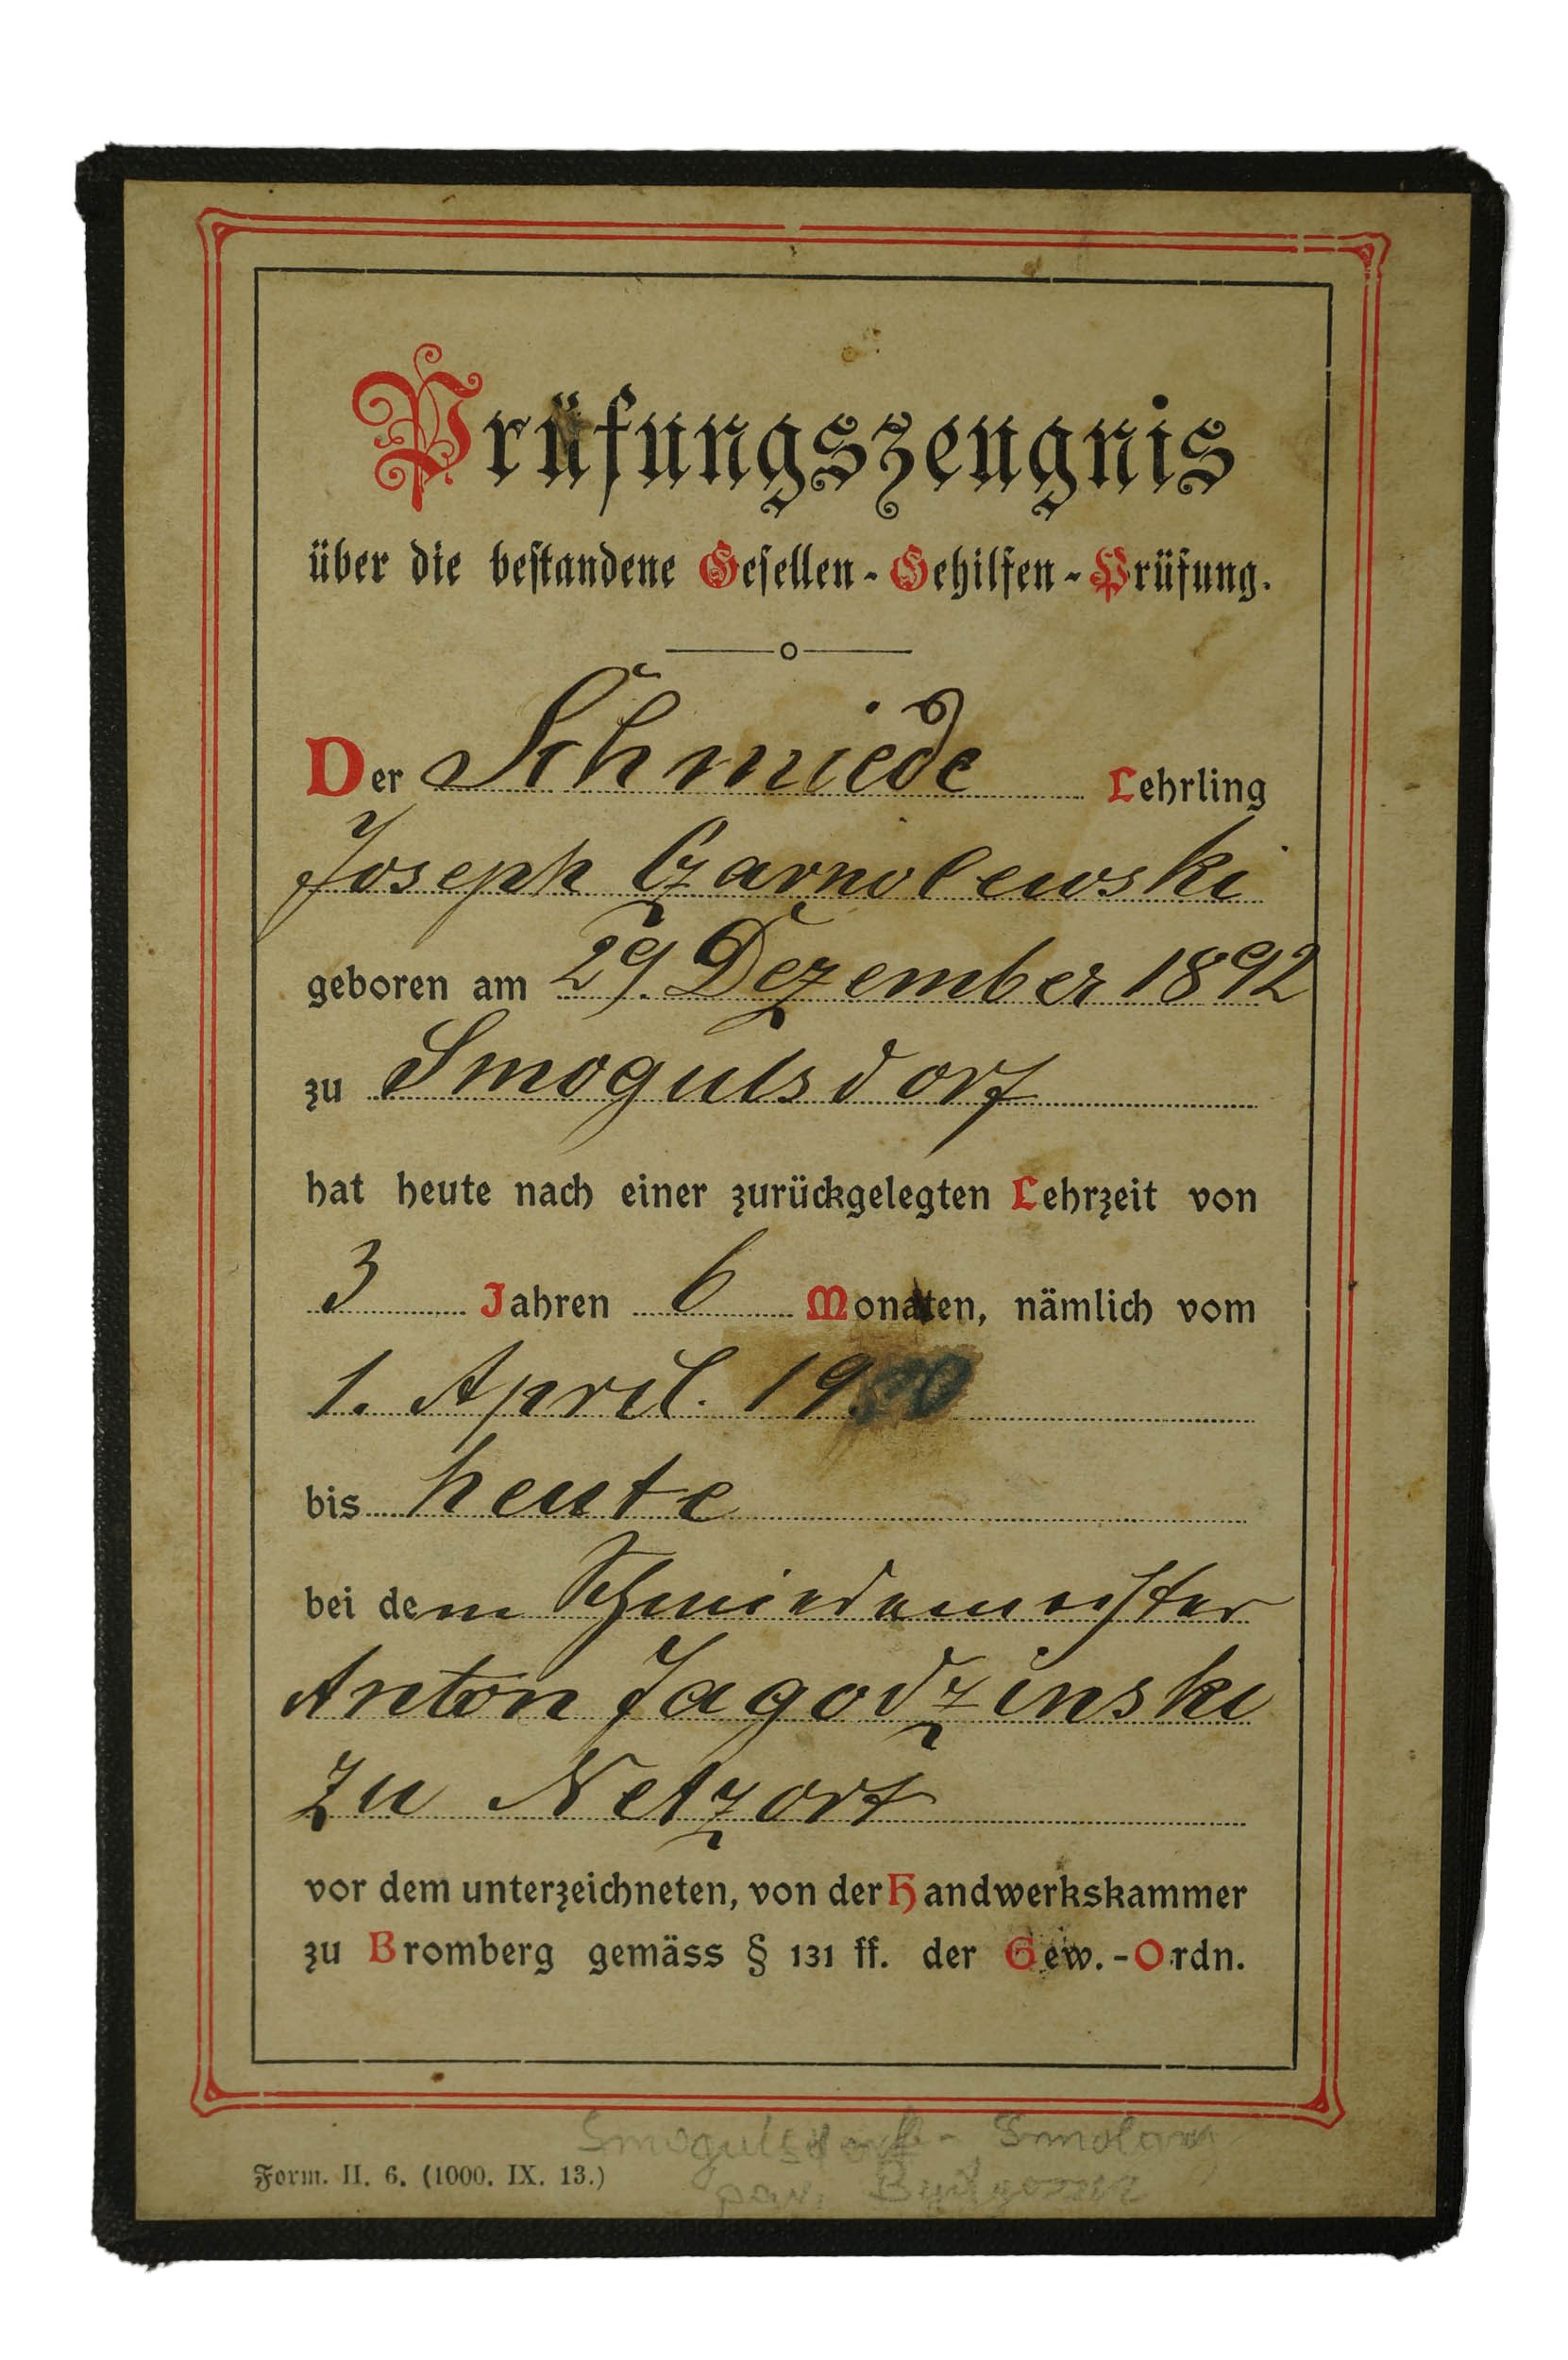 Prüfungszeugnis
über die bestandene Gesellen-Gehilfen-Prüfung.
Der Schmiede Lehrling
Joseph Czarnolewski
geboren am 29. Dezember 1892
zu Smogulsdorf
hat heute nach einer zurückgelegten Lehrzeit von
3 Jahren 6 Monaten, nämlich vom
1. April. 19
bis heute
bei dem Schmiedemeister
Anton Jagodzinski
zu Netzort
vor dem unterzeichneten, von der Handwerkskammer
zu Bromberg gemäss § 131 ff. der Gew.-Ordn.
Smogulsdorf -
Form. II. 6. (1000. IX. 13.)